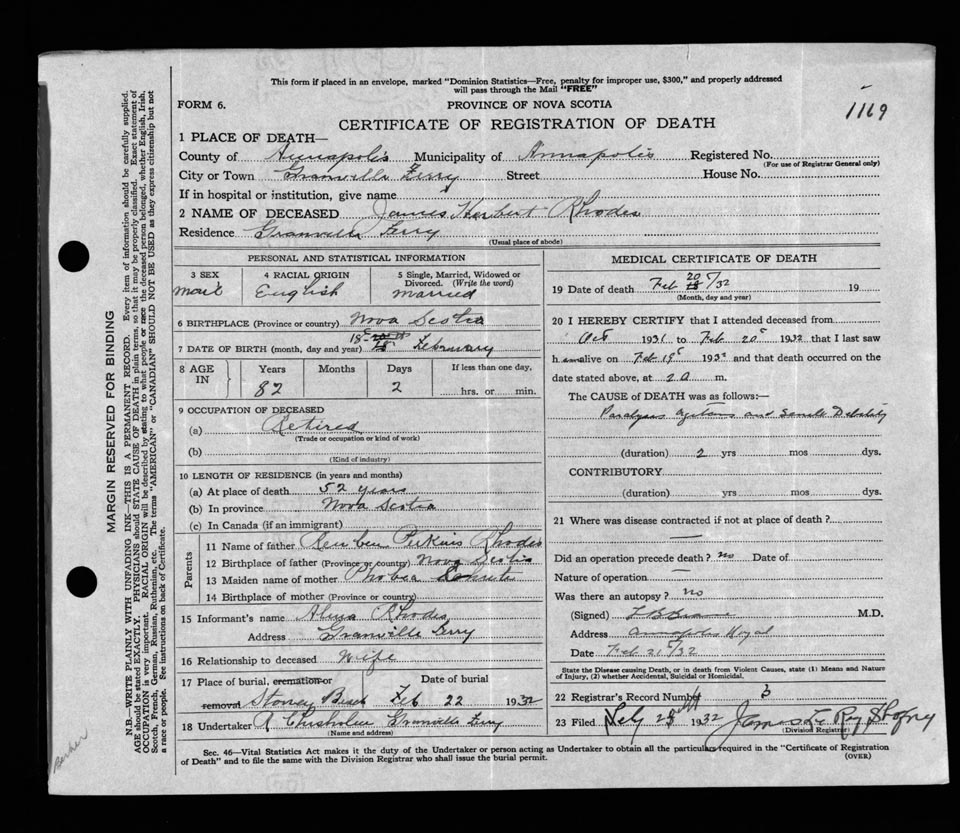 This form if placed in an envelope, marked "Dominion Statistics—Free, penalty for improper use, $300," and properly addressed
will pass through the Mail "FREE"
FORM 6.
PROVINCE OF NOVA SCOTIA
1169
CERTIFICATE OF REGISTRATION OF DEATH
1 PLACE OF DEATH—
County of Annapolis Municipality of Annapolis Registered No.
(For use of Registrar General only)
City or Town Granville Ferry Street House No.
If in hospital or institution, give name
2 NAME OF DECEASED James Herbert Rhodes
Residence Granville Ferry
(Usual place of abode)
PERSONAL AND STATISTICAL INFORMATION
3 SEX
male
4 RACIAL ORIGIN
English
5 Single, Married, Widowed or
Divorced. (Write the word)
married
6 BIRTHPLACE (Province or country) Nova Scotia
7 DATE OF BIRTH (month, day and year) February
8 AGE IN
Years
82
Months
Days
2
If less than one day.
hrs. or min.
9 OCCUPATION OF DECEASED
(a) Retired
(Trade or occupation or kind of work)
(b)
(Kind of industry)
10 LENGTH OF RESIDENCE (in years and months)
(a) At place of death 52 years
(b) In province Nova Scotia
(c) In Canada (if an immigrant)
Parents
11 Name of father Reuben Perkins Rhodes
12 Birthplace of father (Province or country) Nova Scotia
13 Maiden name of mother Phobea
14 Birthplace of mother (Province or country)
15 Informant's name Rhodes
Address Granville Ferry
16 Relationship to deceased Wife
17 Place of burial, cremation or
removal Stoney Beach
Date of burial
Feb 22 1932
18 Undertaker A Chisholm Granville Ferry
(Name and address)
MEDICAL CERTIFICATE OF DEATH
19 Date of death Feb 20 /32 19
(Month, day and year)
20 I HEREBY CERTIFY that I attended deceased from
Oct 1931 to Feb 20 1932 that I last saw
h m alive on Feb 19 1932 and that death occurred on
date stated above, at 2 a m.
The CAUSE of DEATH was as follows:—
Paralysis Agitans and Senile Debility
(duration) 2 yrs mos dys.
CONTRIBUTORY
(duration) yrs mos dys.
21 Where was disease contracted if not at place of death?
—
Did an operation precede death? no Date of
Nature of operation —
Was there an autopsy? no
(Signed) M.D.
Address Annapolis Royal
Date Feb 21 /32
State the Disease causing Death, or in death from Violent Causes, state (1) Means and Nature
of Injury, (2) whether Accidental, Suicidal or Homicidal.
22 Registrar's Record Number 3
23 Filed 1932 James
(Division Registrar)
Sec. 46—Vital Statistics Act makes it the duty of the Undertaker or person acting as Undertaker to obtain all the particulars required in the "Certificate of Registration
of Death" and to file the same with the Division Registrar who shall issue the burial permit.
(OVER)
MARGIN RESERVED FOR BINDING
N.B.—WRITE PLAINLY WITH UNFADING INK—THIS IS A PERMANENT RECORD. Every item of information should be carefully supplied.
AGE should be stated EXACTLY. PHYSICIANS should STATE CAUSE OF DEATH in plain terms, so that it may be properly classified. Exact statement of
OCCUPATION is very important. RACIAL ORIGIN will be described by stating to what people or race the deceased person belonged, whether English, Irish,
Scotch, French, German, Russian, Ruthenian, etc. The terms "AMERICAN" or "CANADIAN" SHOULD NOT BE USED as they express citizenship but not
a race or people. See instructions on back of Certificate.